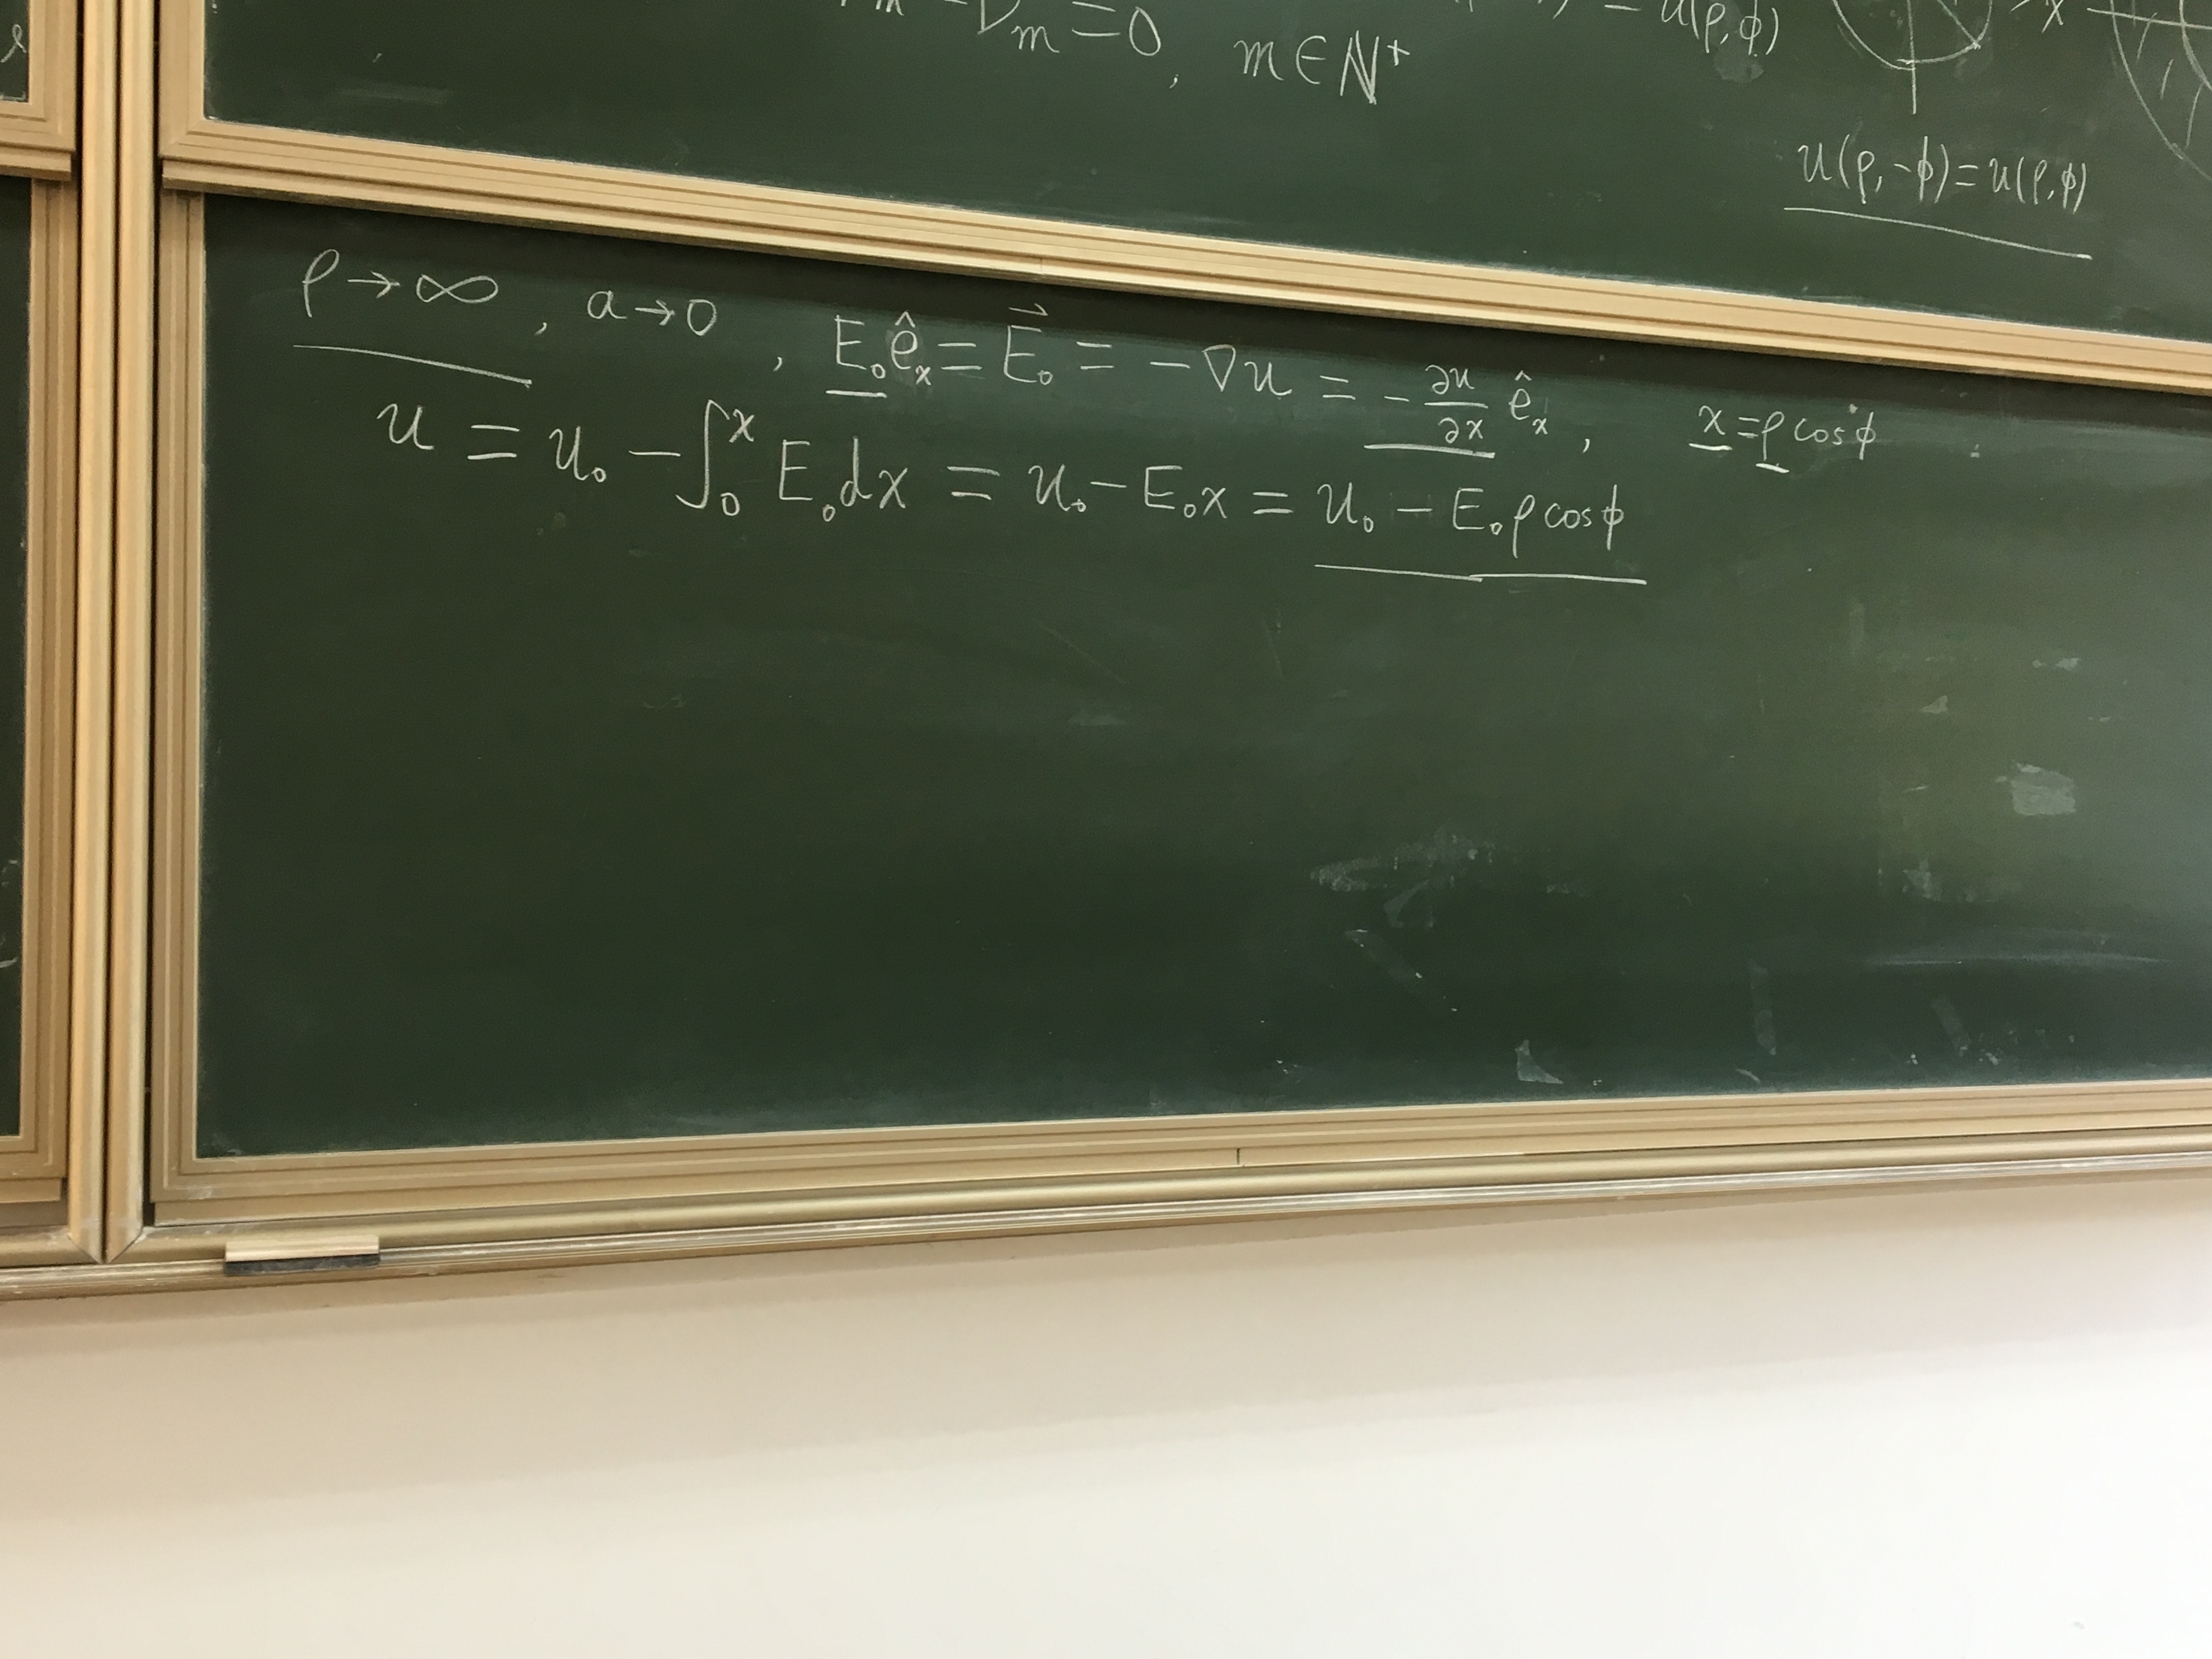 m = 0, m ∈ ℕ⁺
= u(ρ,ϕ)
x
u(ρ,-ϕ)=u(ρ,ϕ)
ρ→∞, a→0, E₀ê_x = E⃗₀ = -∇u = -∂u/∂x ê_x, x=ρcosϕ
u = u₀ - ∫₀ˣ E₀dx = u₀ - E₀x = u₀ - E₀ρcosϕ